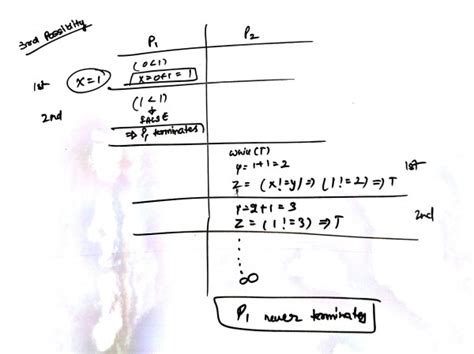 3rd Possibility
P1 P2
(0<1)
1st x=1 x=0+1=1
2nd (1<1)
↓
FALSE
⇒ P1 terminates
while(T)
y=1+1=2 1st
Z=(x!=y)⇒(1!=2)⇒T
y=2+1=3 2nd
Z=(1!=3)⇒T
∞
P1 never terminates